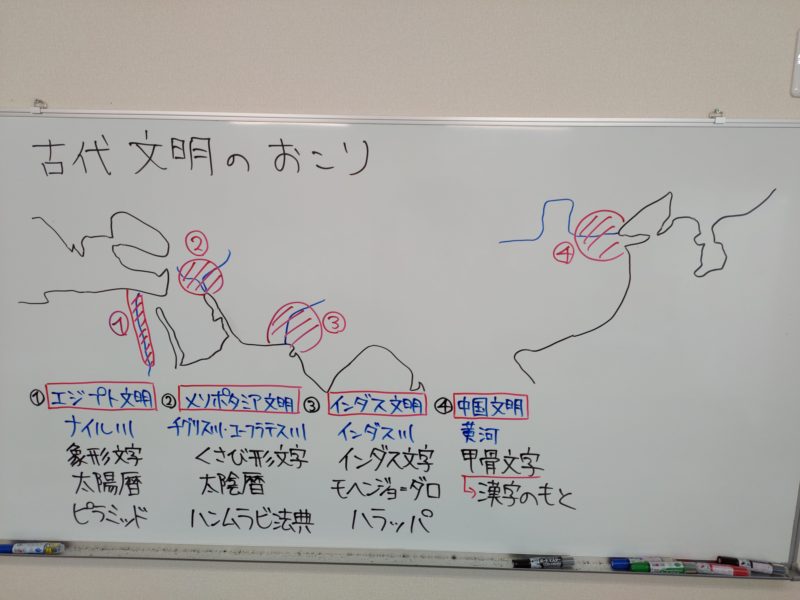 古代文明のおこり
②
④
①
③
①エジプト文明
ナイル川
象形文字
太陽暦
ピラミッド
②メソポタミア文明
チグリス川・ユーフラテス川
くさび形文字
太陰暦
ハンムラビ法典
③インダス文明
インダス川
インダス文字
モヘンジョ=ダロ
ハラッパ
④中国文明
黄河
甲骨文字
↳漢字のもと